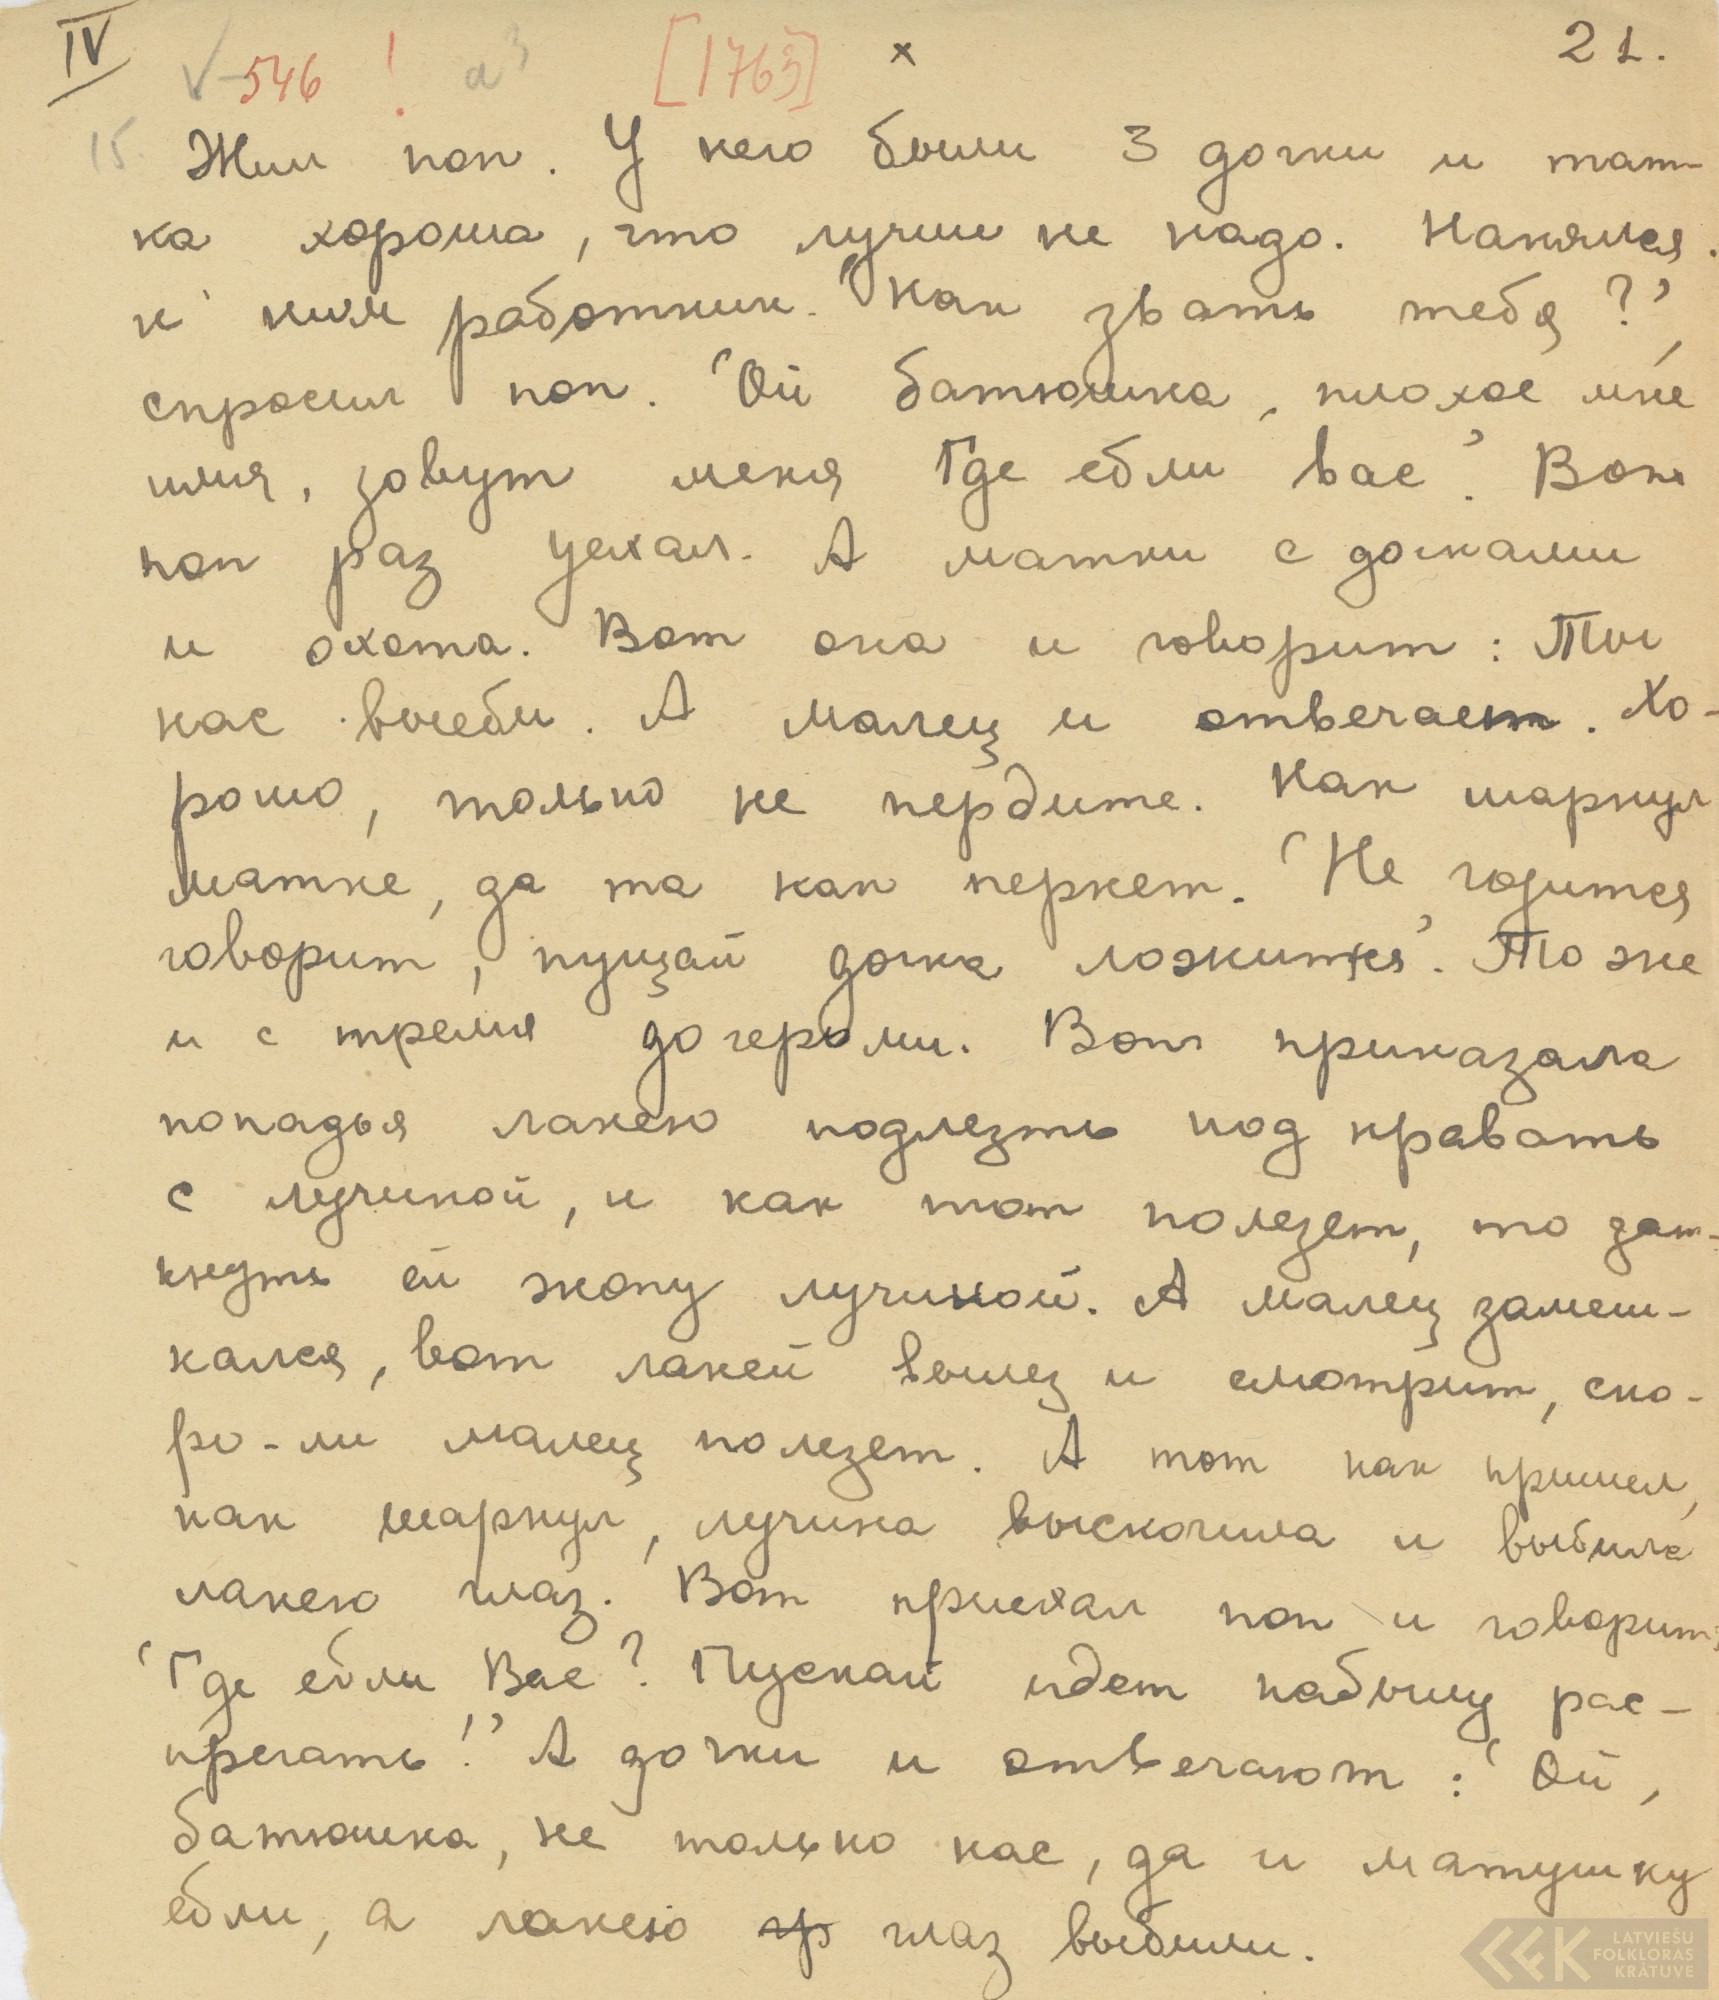 IV
V-546 ! a3 [1763] x 21.
15. Жил поп. У него были 3 дочки и мат-
ка хороша, что лучше не надо. Нанялся
к ним работник. "Как звать тебя?",
спросил поп. "Ой батюшка, плохое мне
имя, зовут меня Где ебли вас". Вот
поп раз уехал. А матки с дочками
и охота. Вот она и говорит: Ты
нас выеби. А малец и отвечает. Хо-
рошо, только не пердите. Как шаркул
матке, да та как пернет. "Не годится
говорит, пущай дочка ложится". То же
и с тремя дочерьми. Вот приказала
попадья лакею подлезть под кравать
с лучиной, и как тот полезет, то зат-
кнуть ей жопу лучиной. А малец замеш-
кался, вот лакей вылез и смотрит, ско-
ро-ли малец полезет. А тот как пришел,
как шаркул, лучина выскочила и выбила
лакею глаз. Вот приехал поп и говорит:
"Где ебли Вас? Пускай идет кабылу рас-
прегать!" А дочки и отвечают: "Ой,
батюшка, не только нас, да и матушку
ебли, а лакею гр глаз выбили.
LATVIEŠU
FOLKLORAS
KRĀTUVE